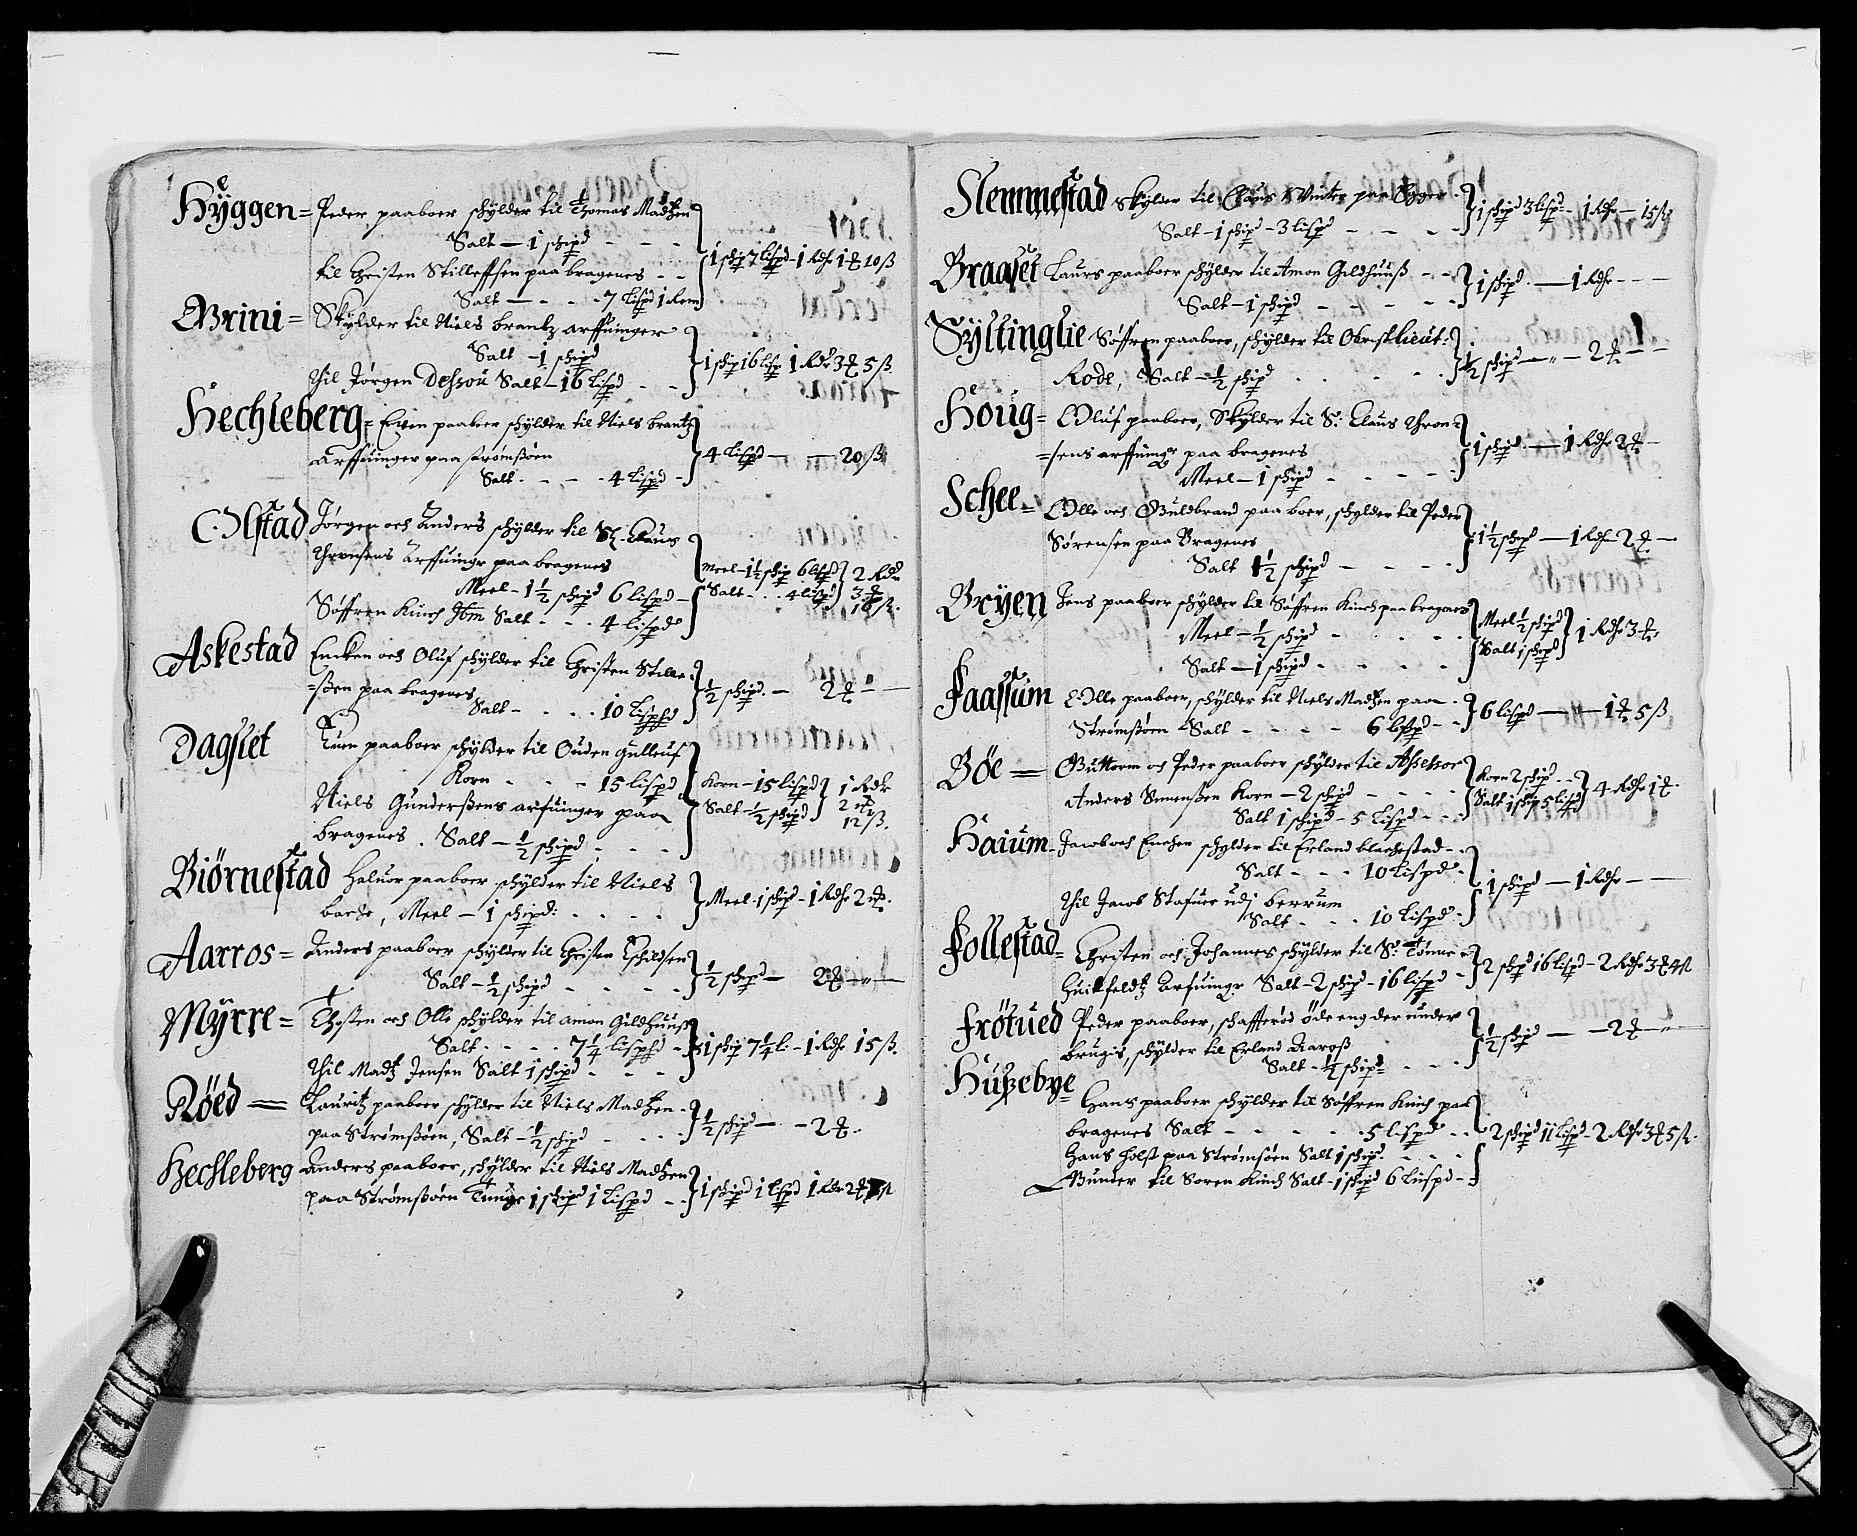 Hÿggen = Peder paaboer schÿlder til Thomas Madtzen
Salt — 1 schipd - - -
til Christen Stilleffsen paa bragenes - -
Salt — - - - 7 lispd 1 Rem
1 schip 7 lispd - 1 Rdr 1 10 ß
Grini = Skÿlder til Niels brantz arffuinger
Salt - 1 schipd
Til Jørgen Dehsou Salt - 16 lispd - -
1 schip 16 lisp 1 Rdr 3 5 ß.
Hechleberg = Even paaboer schÿlder til Niels brantz
Arffuinger paa strømsøen
Salt. - - - 4 lispd -
4 lispd — — 20 ß
Olstad Jørgen och Anders schÿlder til Claus
Thronsens Arffuingr paa bragenes
Meel - 1½ schipd 6 lispd -
Søffren Kinch Salt - - - 4 lispd
Meel - 1½ schip 6 lispd 2 Rdr
Salt - . . 4 lispd 3
16 ß.
Askestad Encken och Oluf schÿlder til Christen Stille-
=ßen paa bragenes
Salt - . . . 10 lispd
½ schipd. — 2 — —
Dagslet paaboer schÿlder til Ouden gulleuf
Korn - - - 15 lispd
Niels Gunderßens arfuinger paa
bragenes . Salt — ½ schipd - - -
Korn - 15 lispd 1 Rdr
Salt - ½ schipd 2
12 ß.
Biørnestad Haluor paaboer schÿlder til Niels
Meel — 1 schipd: - - -
Meel - 1 schipd - 1 Rdr 2
Aarros = Anders paaboer schÿlder til Christen
Salt - ½ schipd - - - -
½ schipd — 2 — —
Mÿrre = och Olle schÿlder til Amon Gildhuuß
Salt . - - - 7¼ lispd -
Til Madtz Jensen Salt 1 schipd - - -
1 schip 7¼ l: - 1 Rdr 15 ß.
Røed — Lauritz paaboer schÿlder til Niels Madtzen -
paa Strømßøen, Salt - ½ schipd - - -
½ schipd — - 2
Hechleberg Anders paaboer, schÿlder til Niels Madtzen
paa Strømßøen Tunge 1 schipd 1 lispd - -
1 schipd 1 lispd 1 Rdr 2
Slemmestad Skÿlder til Claus Winter paa
Salt - 1 schipd - 3 lispd - - - -
1 schipd 3 lispd - 1 Rdr — 15 ß
Braaset Laurs paaboer schÿlder til Amon Gildhuuß - -
Salt - 1 schipd - - - - -
1 schipd. — 1 Rdr - - -
Sÿltinglie Søffren paaboer, schÿlder til Obristlieut:
Rode, Salt - ½ schipd . . . .
½ schipd — „ — 2 — —
Houg = Oluf paaboer, Skÿlder til Sr. Claus Thron =
=sens arffuingr paa bragenes
Meel - 1 schipd - - - -
1 schipd — 1 Rdr 2 —
Schee = Olle och Guldbrand paa boer, schÿlder til Peder
Sørensen paa Bragenes
Salt 1½ schipd - - - -
1½ schipd — 1 Rdr 2 —
Brÿen Jens paaboer schÿlder til Søffren Kinch paa bragenes
Meel - ½ schipd - - - - -
Salt - 1 schipd - - - -
Meel ½ schipd
Salt 1 schipd 1 Rdr 3
Faassum Olle paaboer, schÿlder til Niels Madtzen paa -
Strømßøen Salt - - - - 6 lispd - -
6 lispd — — 1 5 ß
Bøe — Guttorm och Peder paaboer schÿlder til Assessor
Anders Simenßen Korn - 2 schipd - - - -
Salt 1 schipd - 5 lispd - - -
Korn 2 schipd - -
Salt 1 schip 5 lispd 4 Rdr 1
Haium = Jacob och Enchen schÿlder til Erland blachestad - .
Salt - - - 10 lispd -
Til Jacob Stafuer udj berrum
Salt - - - 10 lispd -
1 schipd — 1 Rdr — —
Follestad = Christen och Johannes schÿlder til Sr. Tønne =
Huitfeldtz Arfuingr. Salt - 2 schip - 16 lispd -
2 schipd 16 lispd - 2 Rdr 3 4 ß
Frøtued Peder paaboer, øde eng der under
brugis, schÿlder til Erland Aaroß
Salt - ½ schipd - - -
½ schipd — — 2 — „
Hußebye = Hans paaboer schÿlder til Søffren Kinch paa
bragenes Salt - - - - - 5 lispd - -
Hans Holst paa Strømsøen Salt 1 schipd - - -
Gunder til Soren Kinch Salt - 1 schipd 6 lispd - -
2 schipd 11 lispd - 2 Rdr 3 5 ß.